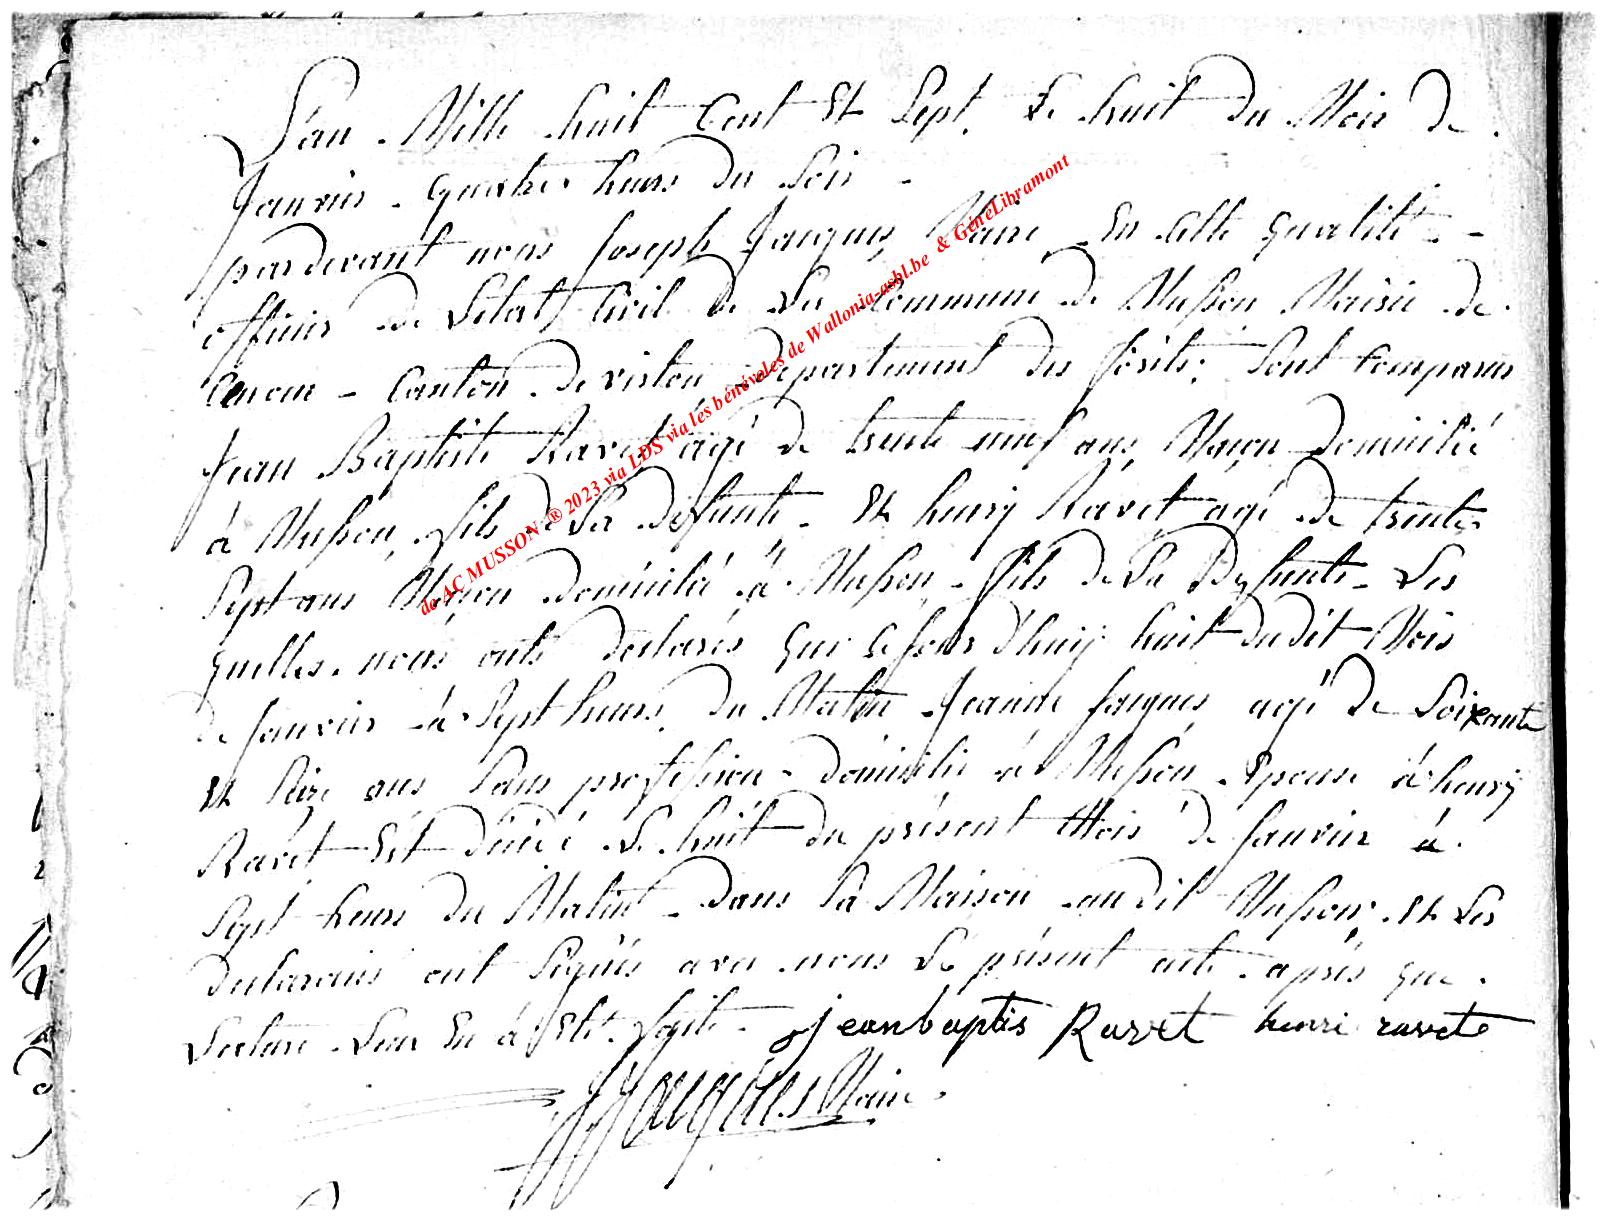 L'an Mille huit Cent Et Sept. Le huit du Mois de
Janvier - quatre heures du Soir -
pardevant nous Joseph Jacques, Maire En cette qualité
officier de L'etat Civil de La Commune de Musson Mairie de
Canton de virton Departement des forêts; Sont Comparus
Jean Baptiste Ravet agé de trente neuf ans, Maçon Domicilié
à Musson, fils de La défunte - Et henry Ravet agé de trente
Sept ans Maçon Domicilié à Musson - fils de La Defunte - Les
quelles nous onts declarés que ce jour d'huij huit dudit Mois
de Janvier à Sept heures du Matin Jeanne Jacques agé de Soixante
et Seize ans Sans profession - domicilié à Musson Epouse à henry
Ravet Est décédé Le huit du présent Mois de Janvier à
Sept heures du Matin - Dans Sa Maison audit Musson, et Les
declarans ont Signés avec nous Le présent acte après que
Lecture Leur En à Eté faite - jeanbaptis Ravet henri ravet
JJacques Maire
de AC MUSSON ® 2023 via LDS via les bénévoles de Wallonia-asbl.be & GénéLibramont